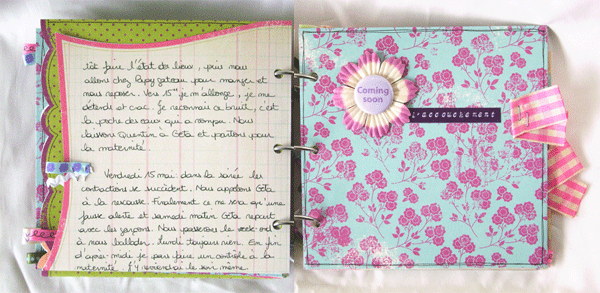 tôt faire l'état des lieux, puis nous
allons chez Papy gateau pour manger et
nous reposer. Vers 15h je m'allonge, je me
détends et crac. Je reconnais ce bruit, c'est
la poche des eaux qui a rompue. Nous
laissons Quentin à Céta et partons pour
la maternité.
Vendredi 15 mai dans la soirée les
contractions se succèdent. Nous appelons Céta
à la rescousse. Finalement ce ne sera qu'une
fausse alerte et samedi matin Céta repart
avec les garçons. Nous passerons le week-end
à nous ballader. Lundi toujours rien. En fin
d'après-midi je pars faire un contrôle à la
maternité. J'y reviendrai le soir même.
Coming
soon
l'accouchement